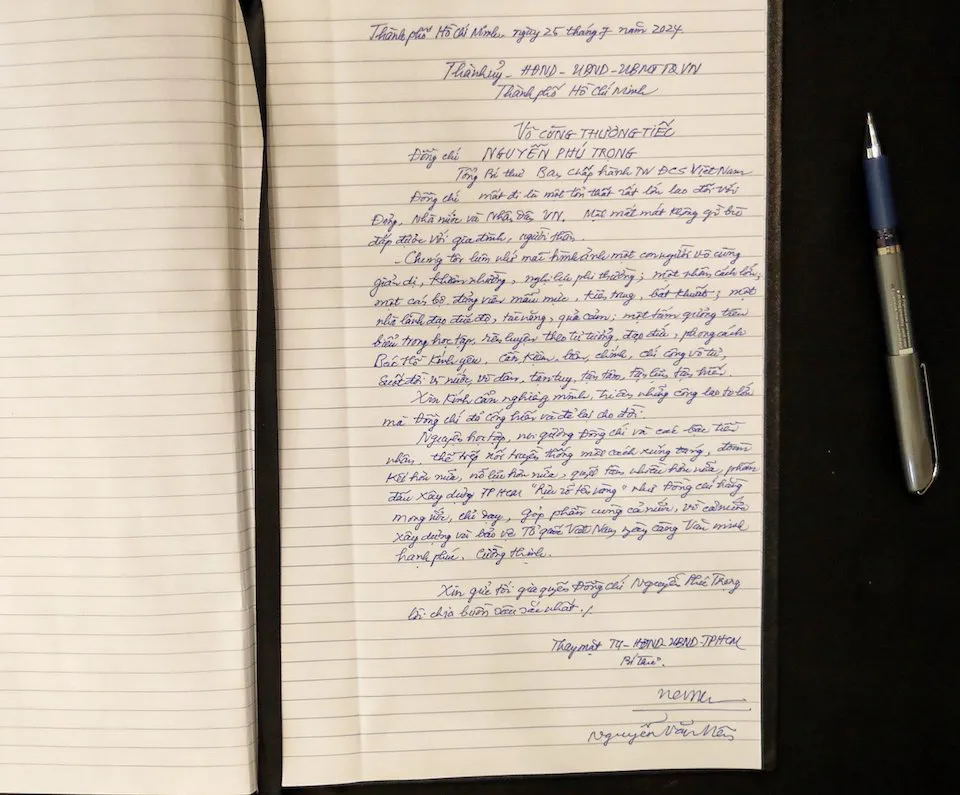 Thành phố Hồ Chí Minh, ngày 25 tháng 7 năm 2024
Thành ủy - HĐND - UBND - UBMTTQVN
Thành phố Hồ Chí Minh
VÔ CÙNG THƯƠNG TIẾC
Đồng chí NGUYỄN PHÚ TRỌNG
Tổng Bí thư Ban Chấp hành TW ĐCS Việt Nam
Đồng chí mất đi là một tổn thất rất lớn lao đối với
Đảng, Nhà nước và Nhân Dân VN. Một mất mát không gì bù
đắp được với gia đình, người thân.
- Chúng tôi luôn nhớ mãi hình ảnh một con người vô cùng
giản dị, khiêm nhường, nghị lực phi thường; một nhân cách lớn;
một cán bộ đảng viên mẫu mực, kiên trung, bất khuất; một
nhà lãnh đạo đức độ, tài năng, quả cảm; một tấm gương tiêu
biểu trong học tập, rèn luyện theo tư tưởng, đạo đức, phong cách
Bác Hồ kính yêu, cần, kiệm, liêm, chính, chí công vô tư,
suốt đời vì nước, vì dân, tận tụy, tận tâm, tận lực, tận hiến.
Xin kính cẩn nghiêng mình, tri ân những công lao to lớn
mà Đồng chí đã cống hiến và để lại cho đời.
Nguyện học tập, noi gương Đồng chí và các bậc tiền
nhân, thế tiếp nối truyền thống một cách xứng đáng, đoàn
kết hơn nữa, nỗ lực hơn nữa, quyết tâm nhiều hơn nữa, phấn
đấu xây dựng TP HCM "Rực rỡ tên vàng" như Đồng chí hằng
mong ước, chỉ dạy, góp phần cùng cả nước, vì cả nước
xây dựng và bảo vệ Tổ quốc Việt Nam ngày càng Văn minh
hạnh phúc, Cường thịnh.
Xin gửi tới gia quyến Đồng chí Nguyễn Phú Trọng
lời chia buồn sâu sắc nhất./.
Thay mặt TU - HĐND - UBND - TPHCM
Bí thư
Nguyễn Văn Nên